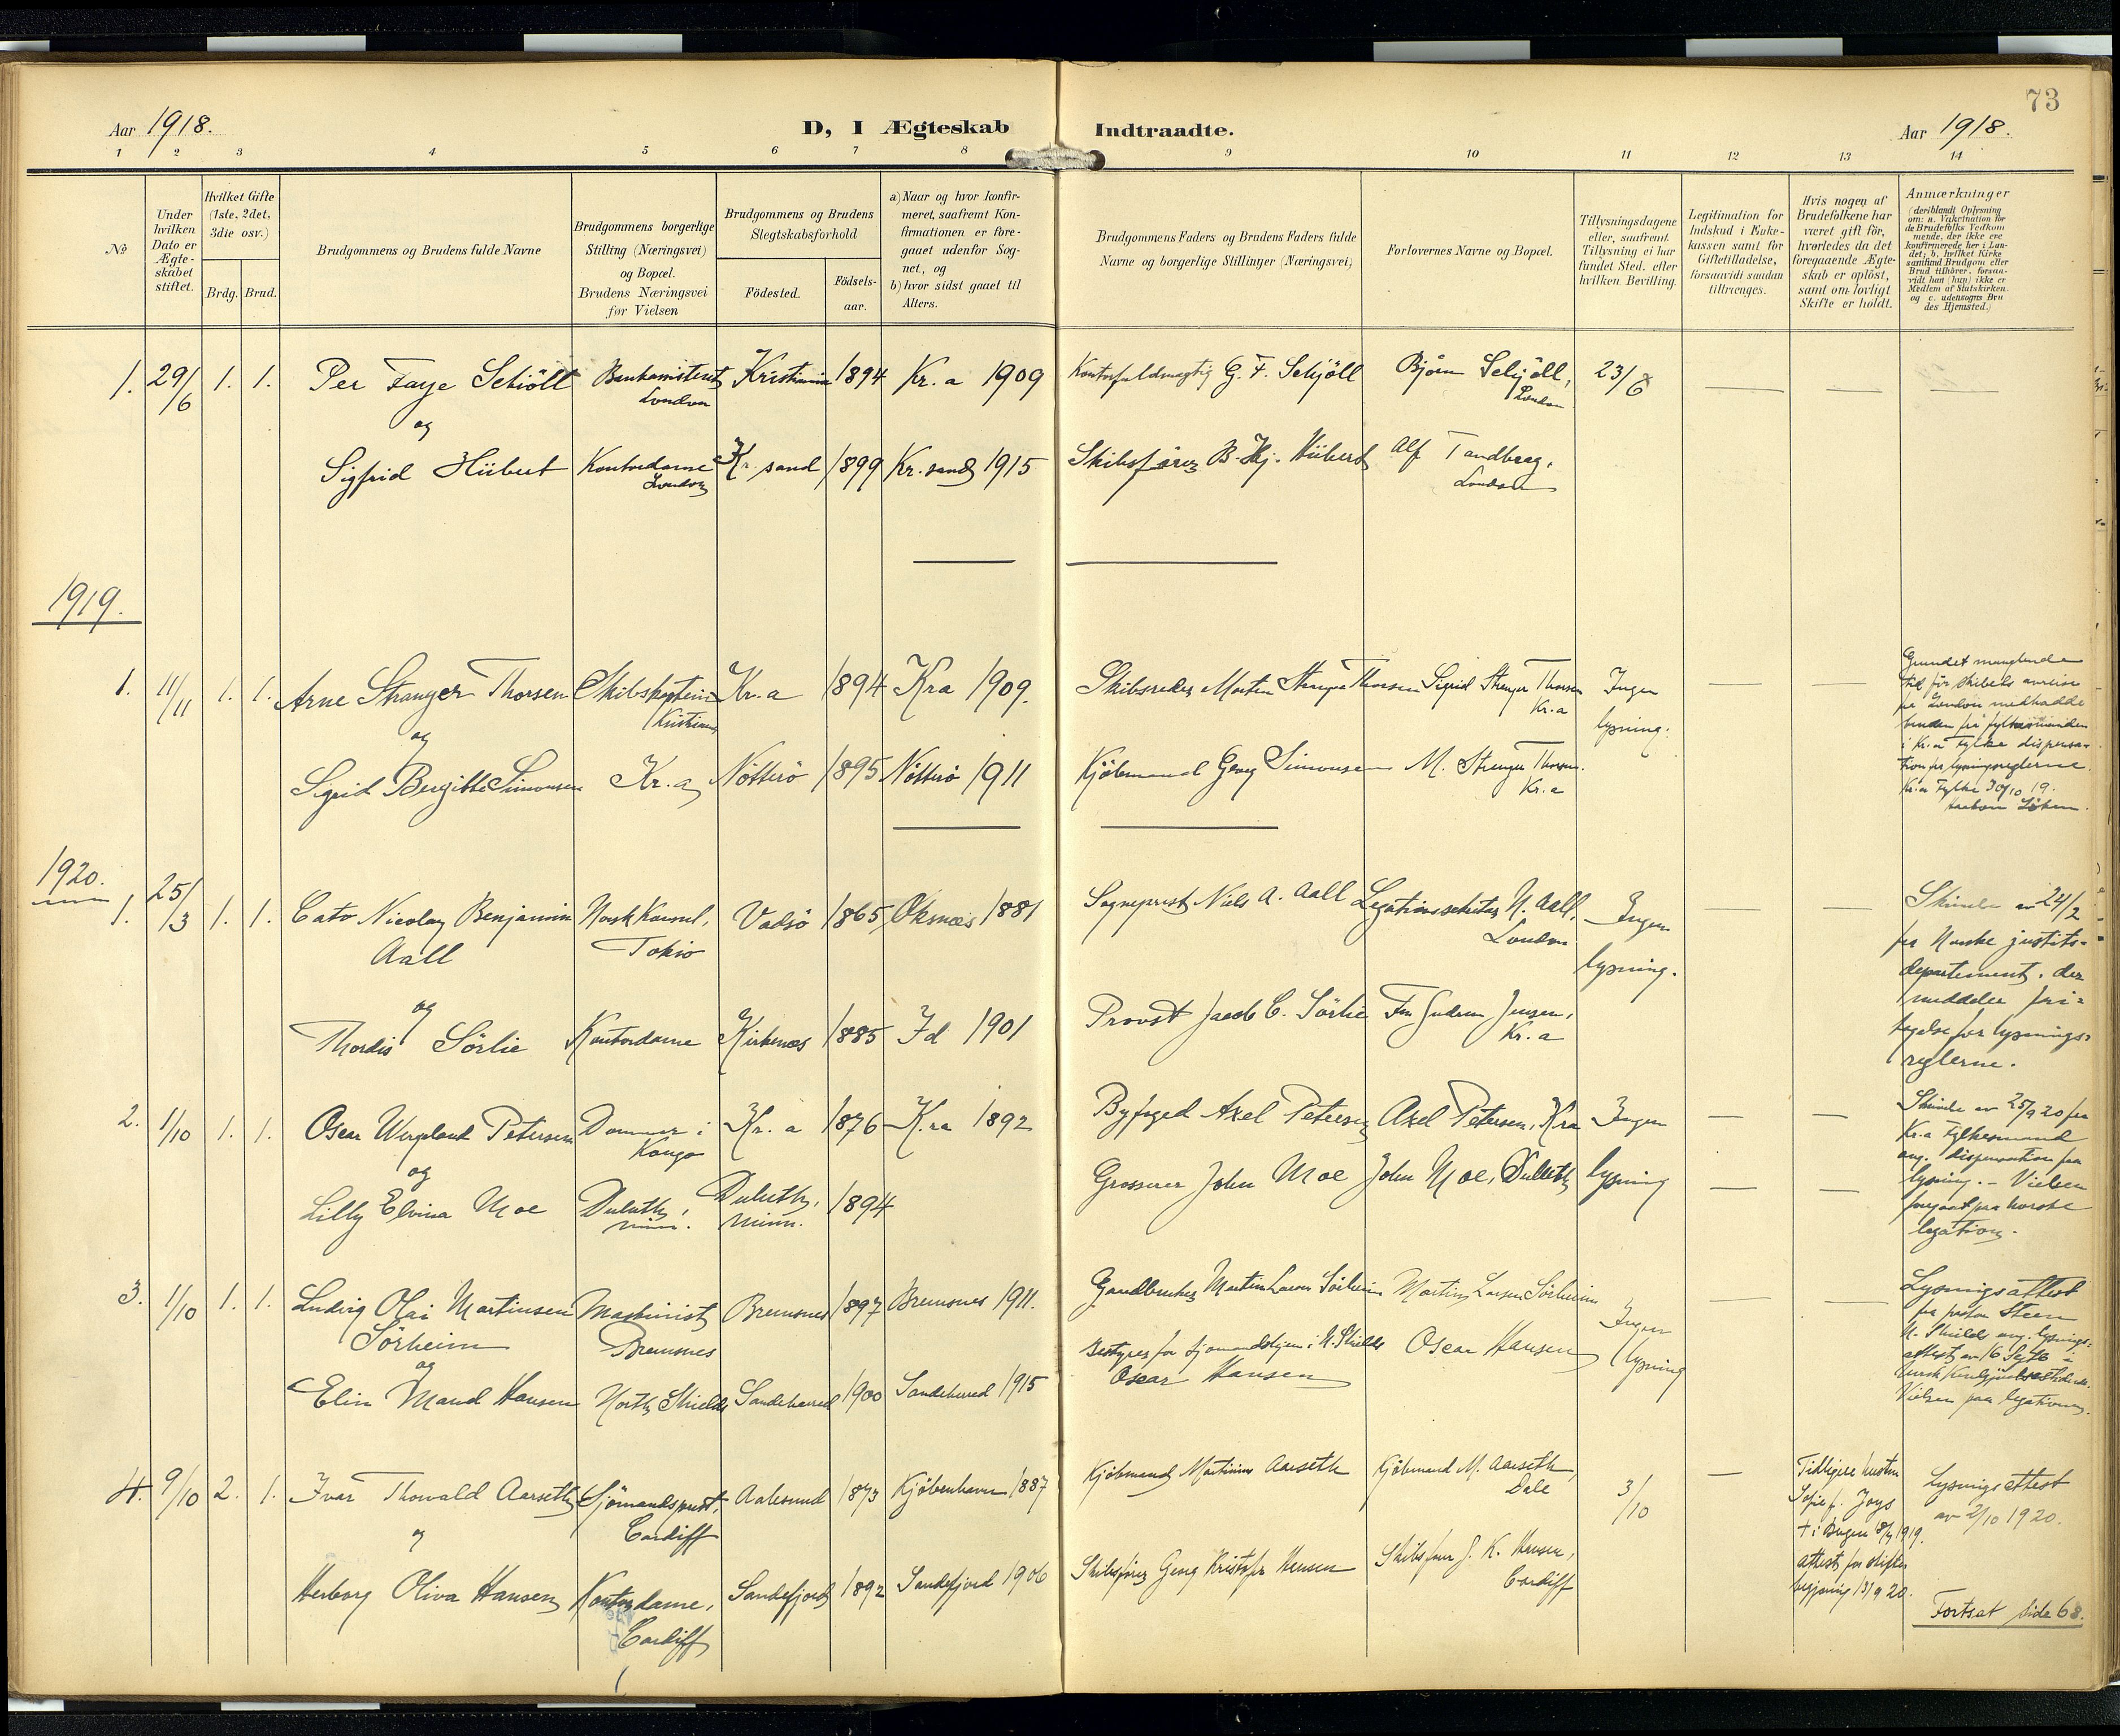 73
Aar 1918.
D, I Ægteskab Indtraadte.
Aar 1918.
1 2 3 4 5 6 7 8 9 10 11 12 13 14
No
Under hvilken Dato er Ægte-skabet stiftet.
Hvilket Gifte (1ste, 2det, 3die osv.)
Brdg. Brud.
Brudgommens og Brudens fulde Navne
Brudgommens borgerlige Stilling (Næringsvei) og Bopæl. Brudens Næringsvei før Vielsen
Brudgommens og Brudens Slegtskabsforhold
Födested.
Födsels-aar.
a) Naar og hvor konfir-meret, saafremt Kon-firmationen er fore-gaaet udenfor Sog-net, og
b) hvor sidst gaaet til Alters.
Brudgommens Faders og Brudens Faders fulde Navne og borgerlige Stillinger (Næringsvei)
Forlovernes Navne og Bopæl.
Tillysningsdagene eller, saafremt Tillysning ei har fundet Sted, efter hvilken Bevilling.
Legitimation for Indskud i Enke-kassen samt for Giftetilladelse, forsaavidt saadan tiltrænges.
Hvis nogen af Brudefolkene har været gift før, hvorledes da det foregaaende Ægte-skab er oplöst, samt om lovligt Skifte er holdt.
Anmærkninger
(deriblandt Oplysning om: a. Vakcination for de Brudefolks Vedkom mende, der ikke ere konfirmerede her i Lan-det; b. hvilket Kirke samfund Brudgom eller Brud tilhörer, forsaa-vidt han (hun) ikke er Medlem af Statskirken. og c. udensogns Bru des Hjemsted.)
1. 29/6 1. 1. Per Faye Schiött Bankassistent Kristiania 1894 Kr.a 1909 Kontorfuldmægtig G. F. Schjöll Björn Schjöll, 23/6
London London
og
Sigfrid Hübert Kontordame Kr. sand 1899 Kr. sand 1915 Skibsförer B. Hj. Hübert Alf Tandberg,
London London
1919.
1. 11/11 1. 1. Arne Stranger Thorsen Skibskaptein Kr.a 1894 Kra 1909. Skibsreder Morten Stranger Thorsen Sigrid Stranger Thorsen Ingen
Kristiania Kr.a lysning.
og
Sigrid Bergitte Simonsen Kr.a Nötterö 1895 Nötterö 1911 Kjöbmand Georg Simonsen M. Stranger Thorsen.
Kr.a
Grundet manglende
tid för skibets avreise
fra London meddelte
fylkesmanden
i Kr.a Fylke dispensa-
tion fra lysningsreglerne.
Kr.a Fylke 30/10 19.
1920.
1. 25/3 1. 1. Cato Nicolay Benjamin Norsk Konsul, Vadsö 1865 Öksnes 1881 Sogneprest Niels A. Aall Legationssekretær N. Aall, Ingen
Aall Tokio London lysning.
og
Thordis Sörlie Kontordame Kirkenes 1885 Id 1901 Provst Jacob C. Sörlie Frk Gudrun Jensen,
Kr.a
Skrivelse av 24/2
fra Norske justits-
departement, der
meddeler fri-
tagelse for lysnings-
reglerne.
2. 1/10 1. 1. Oscar Wergeland Petersen Dommer i Kr.a 1876 K.ra 1892 Byfoged Axel Petersen Axel Petersen, Kra Ingen
Kongo
og
Lilly Elvina Moe Duluth, Duluth, 1894 Grosserer John Moe John Moe, Duluth lysning
Minn. Minn.
Skrivelse av 25/9 20 fra
Kr.a Fylkesmand
ang. dispensation fra
lysning. - Vielsen
foregaat paa norske
legation.
3. 1/10 1. 1. Ludvig Olai Martinsen Maskinist Bremsnes 1897 Bremsnes 1911. Gaardbruker Martin Larsen Sörheim Martin Larsen Sörheim Ingen
Sörheim Bremsnes lysning
og
Elin Maud Hansen North Shields Sandeherred 1900 Sandeherred 1915 Bestyrer for Sjömandshjem i N. Shields Oscar Hansen
Oscar Hansen
Lysningsattest
fra pastor Steen
N. Shields ang. lysnings-
attest av 16 Septb i
Vielsen paa legationen.
4. 9/10 2. 1. Ivar Thorvald Aarseth Sjömandsprest, Aalesund 1873 Kjöbenhavn 1887 Kjöbmand Martinus Aarseth Kjöbmand M. Aarseth, 3/10
Cardiff Dale
og
Herborg Oliva Hansen Kontordame, Sandefjord 1892 Sandefjord 1906 Skibsförer Georg Kristofer Hansen Skibsförer G. K. Hansen,
Cardiff Cardiff
Tidligere hustru
Sofie f. Joys
+ i Bergen 8/4 1919.
Attest for skiftes
Lysningsattest
av 2/10 1920.
Fortsat side 68.